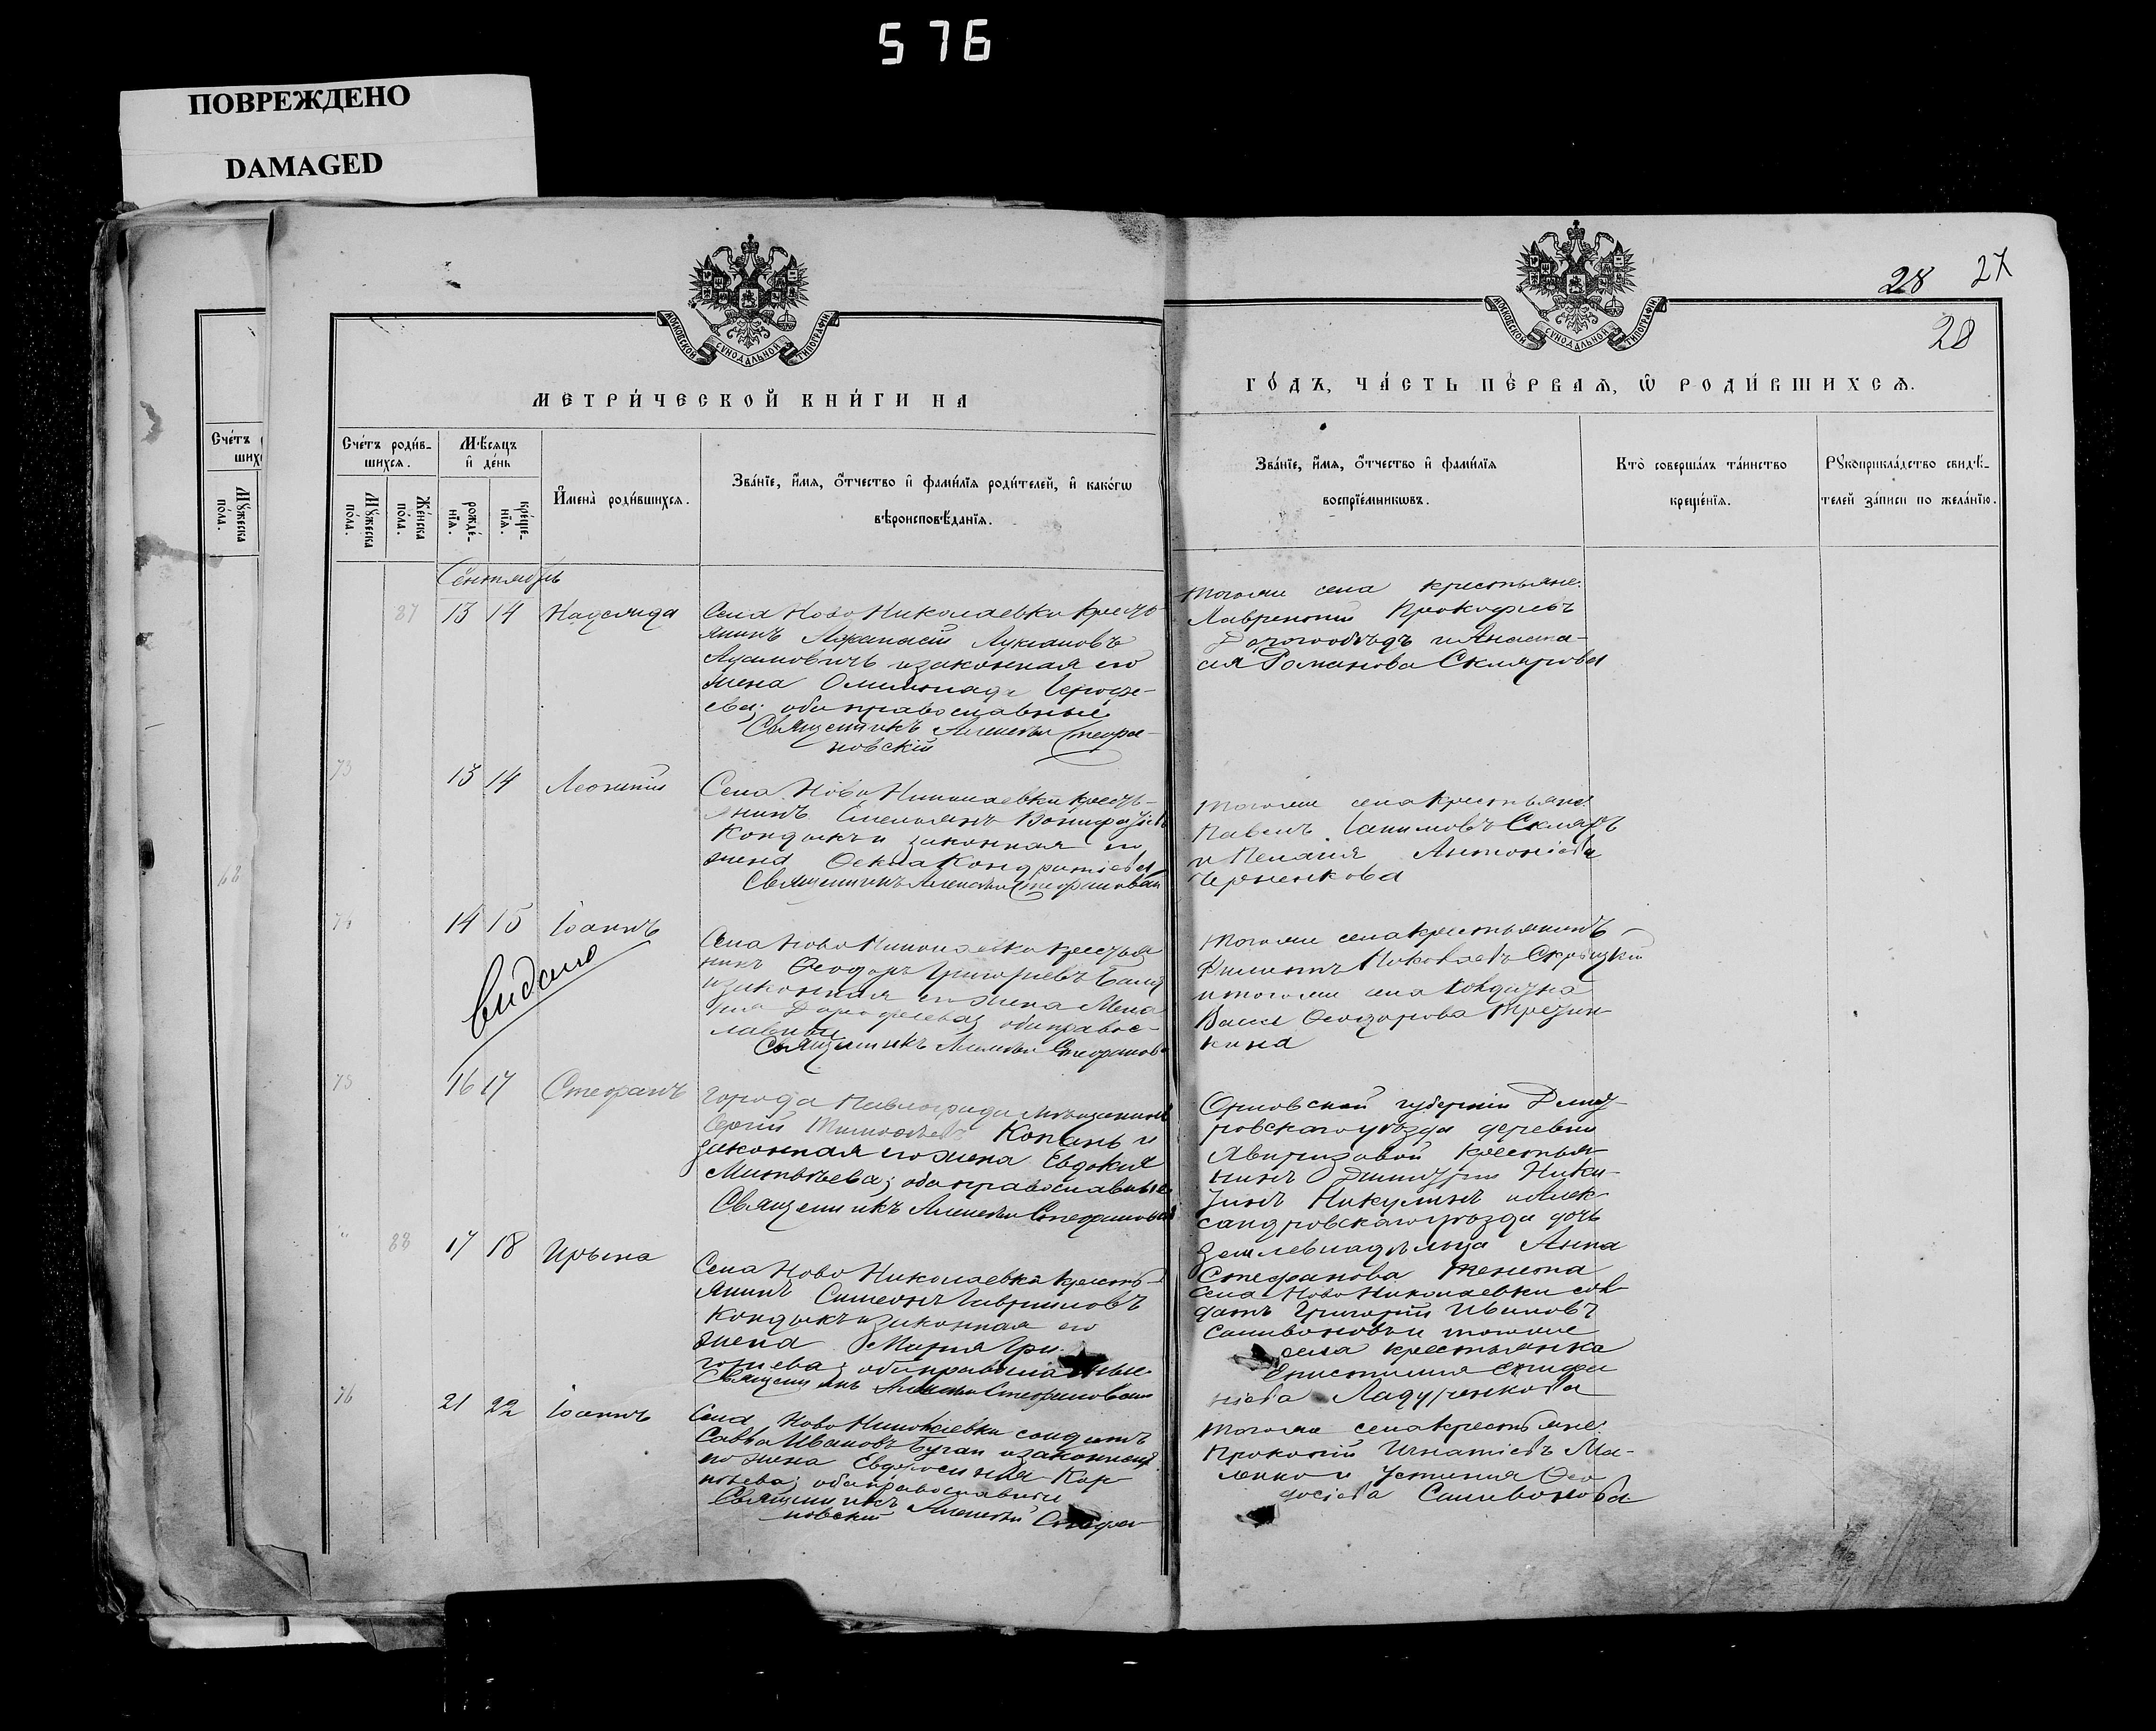 576
ПОВРЕЖДЕНО
DAMAGED
МОСКОВСКОЙ СѴНОДАЛЬНОЙ ТИПОГРАФІИ
МОСКОВСКОЙ СѴНОДАЛЬНОЙ ТИПОГРАФІИ
28 27
28
МЕТРИ́ЧЕСКОЙ КНИ́ГИ НА
ГО́ДЪ, ЧА́СТЬ ПЕ́РВАѦ, Ѡ РОДИ́ВШИХСѦ.
Сче́тъ
ших
Мꙋ́жеска по́ла.
68
Сче́тъ роди́в-
шихсѧ.
Мꙋ́жеска по́ла.
Же́нска по́ла.
Мѣ́сѧцъ
и҆ де́нь
рожде́-
нїѧ.
креще́-
нїѧ.
И҆мена̀ роди́вшихсѧ.
Зва́нїе, и҆́мѧ, ѻ҆́тчество и҆ фами́лїѧ роди́телей, и҆ како́гѡ
вѣроисповѣ́данїѧ.
Зва́нїе, и҆́мѧ, ѻ҆́тчество и҆ фами́лїѧ
воспрїе́мникѡвъ.
Кто̀ соверша́лъ та́инство
креще́нїѧ.
Рꙋкоприкла́дство свидѣ́-
телей за́писи по жела́нїю.
Сентябрь
87 13 14 Надежда
Села Ново Николаевки кресть
янинъ Афанасій Лукіановъ
и законная его
жена Олимпіада
ева; оба православные
Священникъ Алексѣй Стефа-
новскій
тогоже села крестьяне:
Лаврентій Прокофьевъ
и Анаста-
сія Романова Склярова
73 13 14 Леонтій
Села Ново Николаевки кресть-
янинъ Емельянъ
Кондыкъ и законная его
жена Ѳекла Кондратіева
Священникъ Алексѣй Стефановскій
тогоже села крестьяне:
Павелъ Скляръ
и Пелагія Антоніева
Черненкова
74 14 15 Іоаннъ
видано
Села Ново Николаевки крестья
нинъ Ѳеодоръ Григорьевъ
и законная его жена Мела
нія Дорофеева; оба правос-
лавные
Священникъ Алексѣй Стефанов
тогоже села крестьянинъ
Филиппъ
и тогоже села
Ѳеодорова
75 16 17 Стефанъ
города Павлограда мѣщанинъ
Сергій Тимофѣевъ Копань и
законная его жена Евдокія
Матвѣева; оба православные
Священникъ Алексѣй Стефановскій
Орловской губерніи Дмит-
ровскаго уѣзда деревни
крестья-
нинъ Димитрій Ники-
тинъ Никулинъ и Алек-
сандровскаго уѣзда дочь
землевладѣльца Анна
Стефанова
88 17 18 Ирына
Села Ново Николаевки кресть-
янинъ Симеонъ Гавріиловъ
Кондыкъ и законная его
жена Марія Гри-
горіева; оба православные
Священникъ Алексѣй Стефановскій
Села Ново Николаевки сол-
датъ Григорій Ивановъ
Саливоновъ и тогоже
села крестьянка
Епистимія
Ладуренкова
76 21 22 Іоаннъ
Села Ново Николаевки солдатъ
Савва Ивановъ Бугай и законная
его жена Евфросинія Кор-
нѣева; оба православные
Священникъ Алексѣй Стефа-
новскій
тогоже села крестьяне:
Прокопій Игнатіевъ Ма-
ленко и Устинія Ѳео-
досіева Саливонова